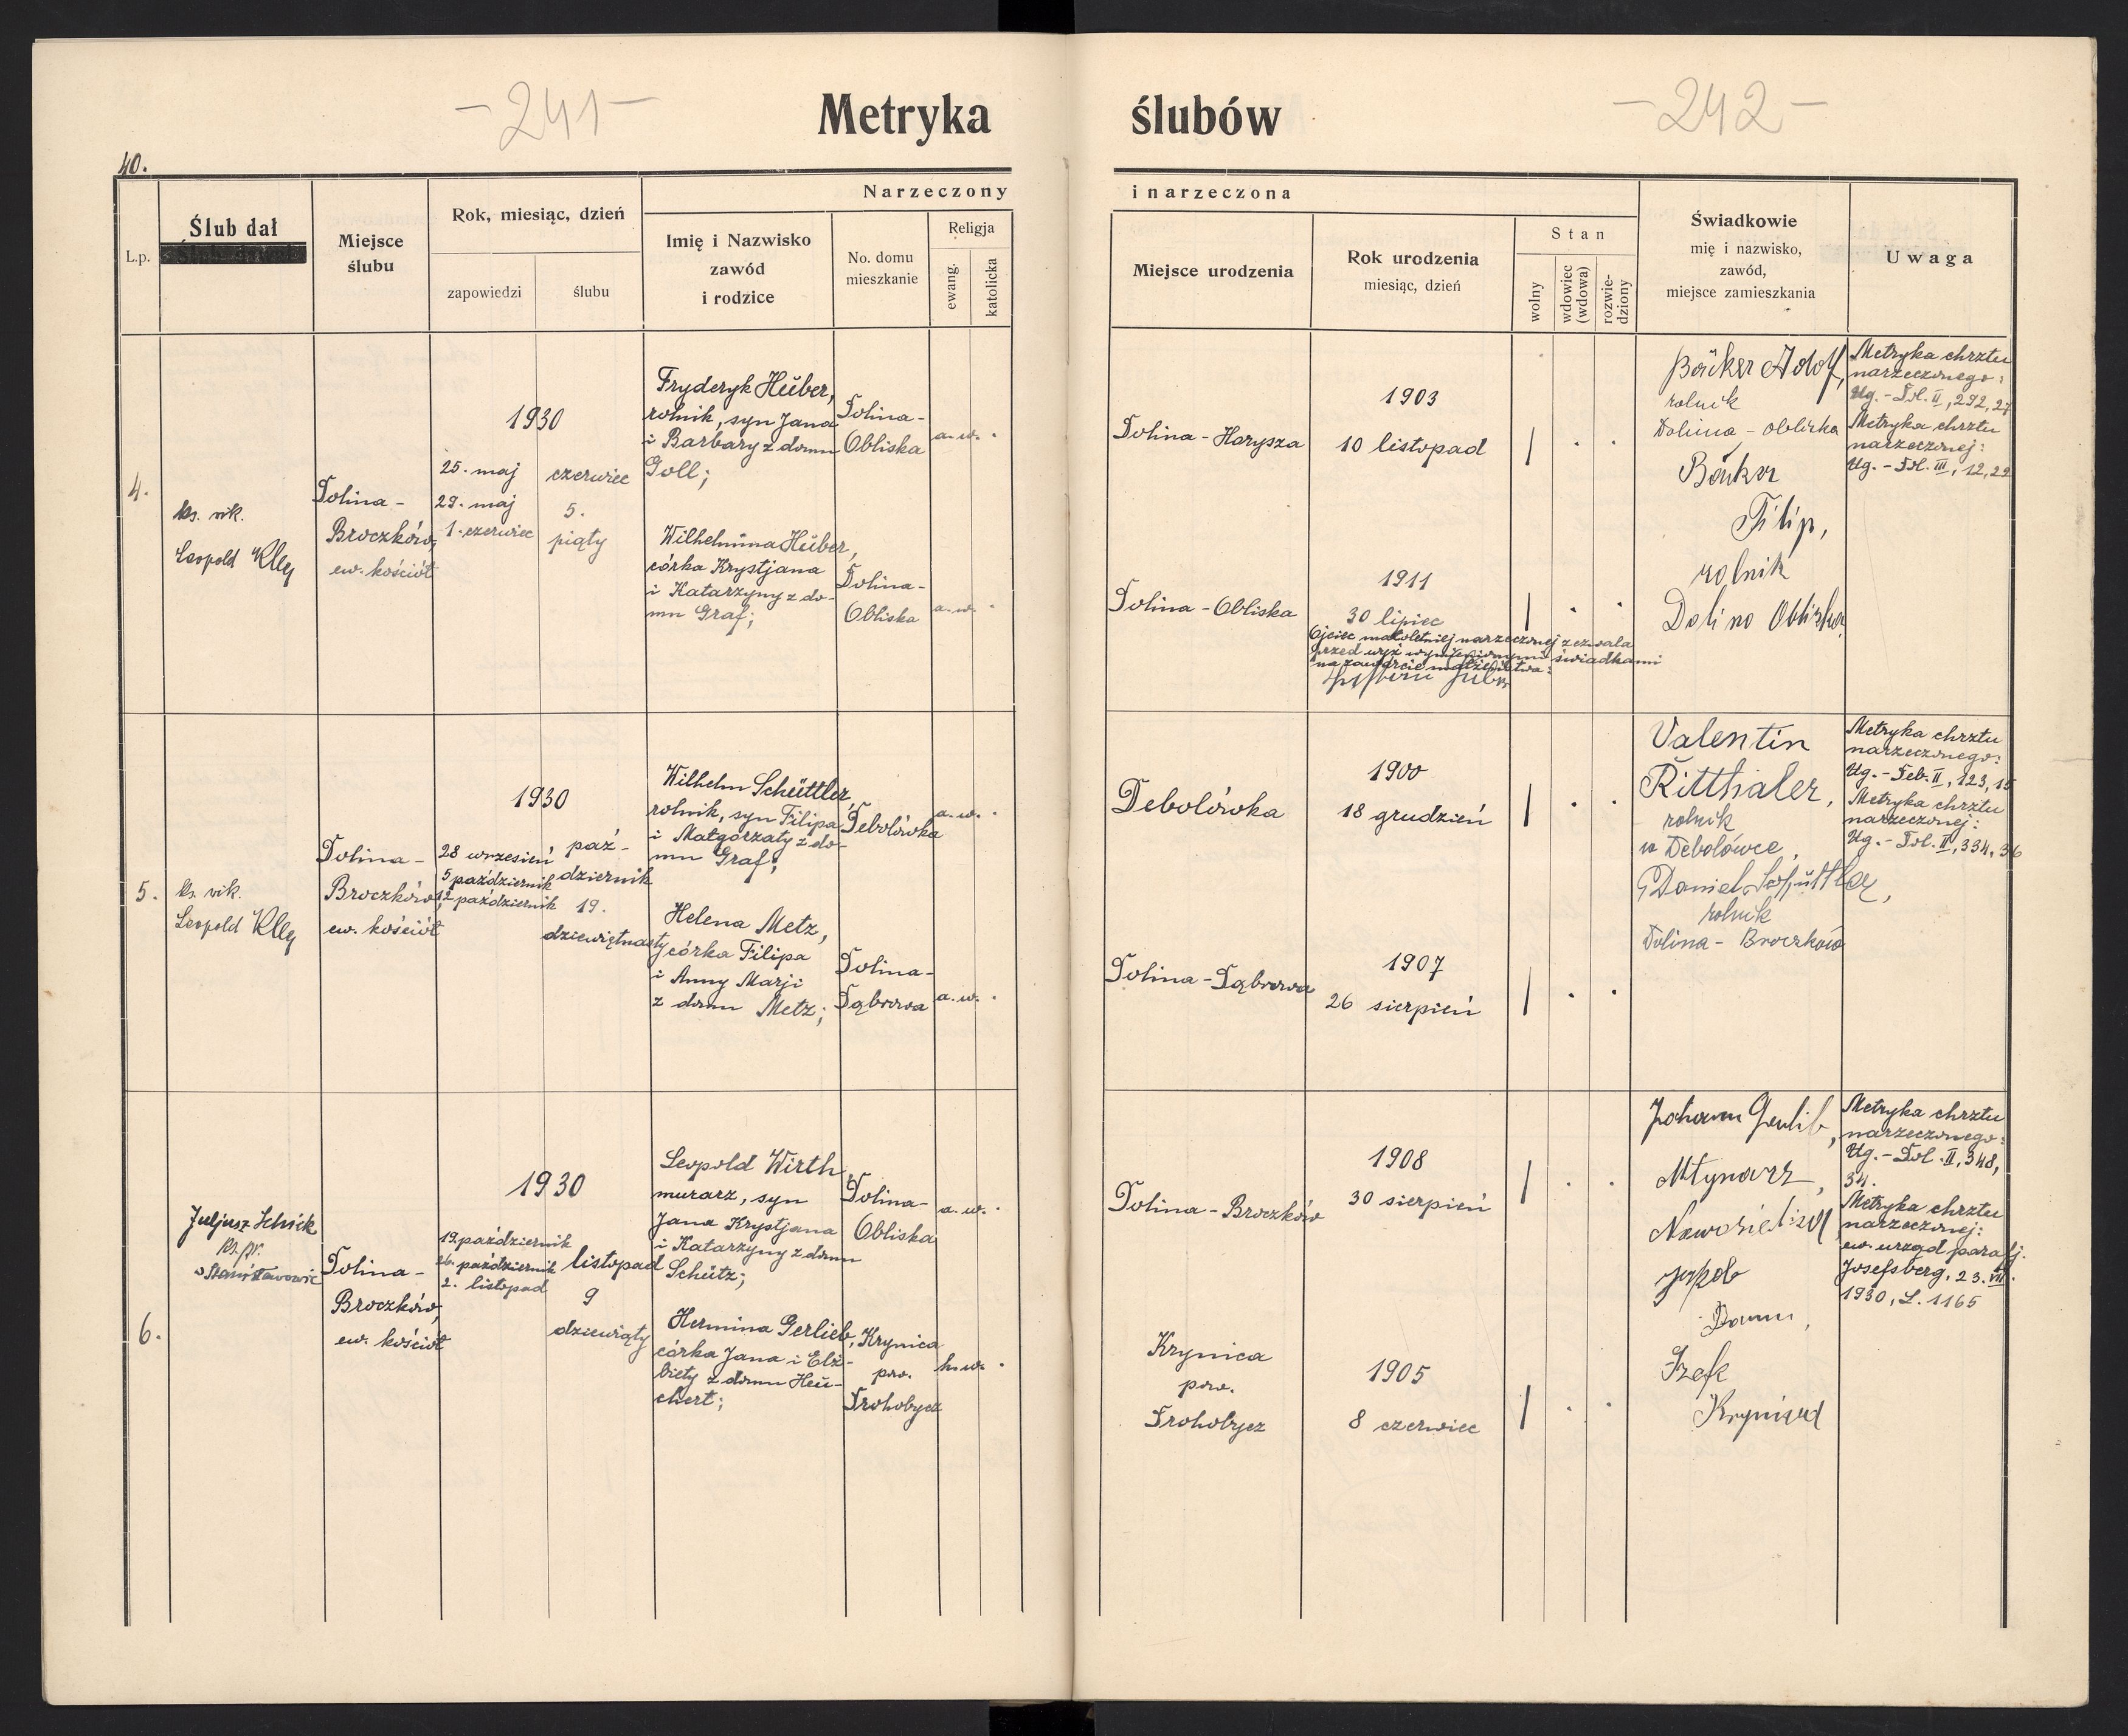 -241-
Metryka
ślubów
-242-
40.
L.p.
Ślub dał
Miejsce
ślubu
Rok, miesiąc, dzień
zapowiedzi
ślubu
Narzeczony
Imię i Nazwisko
zawód
i rodzice
No. domu
mieszkanie
Religja
ewang.
katolicka
i narzeczona
Miejsce urodzenia
Rok urodzenia
miesiąc, dzień
Stan
wolny
wdowiec
(wdowa)
rozwie-
dziony
Świadkowie
mię i nazwisko,
zawód,
miejsce zamieszkania
Uwaga
4.
ks. wik.
Leopold Klly
Dolina-
Broczków,
ew. kościół
1930
25. maj
29. maj
1. czerwiec
czerwiec
5.
piąty
Fryderyk Hüber,
rolnik, syn Jana
i Barbary z domu
Goll;
Dolina-
Obliska
a.w. ·
Wilhelmina Hüber,
córka Krystjana
i Katarzyny z do-
mu Graf;
Dolina-
Obliska
a.w. ·
Dolina-Horysza
1903
10 listopad
Dolina-Obliska
1911
30 lipiec
Ojciec małoletniej narzeczonej zezwala
przed wyż wymienionymi świadkami
na zawarcie małżeństwa:
Bäcker Adolf,
rolnik
Dolina-Obliska
Bäcker
Filip,
rolnik
Dolina Obliska
Metryka chrztu
narzeczonego:
Ug.-Dol. II, 292, 27
Metryka chrztu
narzeczonej:
Ug.-Dol. III, 12, 22
5.
ks. wik.
Leopold Klly
Dolina-
Broczków,
ew. kościół
1930
28 wrzesień
5 październik
12 październik
paź-
dziernik
19.
dziewiętnasty
Wilhelm Schüttler,
rolnik, syn Filipa
i Małgorzaty z do-
mu Graf;
Debolówka
a.w. ·
Helena Metz,
córka Filipa
i Anny Marji
z domu Metz;
Dolina-
Dąbrowa
a.w. ·
Debolówka
1900
18 grudzień
Dolina-Dąbrowa
1907
26 sierpień
Valentin
Ritthaler,
rolnik
w Debolówce,
Daniel Schüttler,
rolnik
Dolina-Broczków
Metryka chrztu
narzeczonego:
Ug.-Deb. II, 123, 15
Metryka chrztu
narzeczonej:
Ug.-Dol. II, 334, 36
6.
Juljusz Schick
ks. pr.
w Stanisławowie
Dolina-
Broczków,
ew. kościół
1930
19. październik
26. październik
2. listopad
listopad
9
dziewiąty
Leopold Wirth
murarz, syn
Jana Krystjana
i Katarzyny z domu
Schütz;
Dolina-
Obliska
a.w. ·
Hermina Gerlieb,
córka Jana i Elż-
biety z domu Heu-
chert;
Krynica
pow.
Drohobycz
h.w. ·
Dolina-Broczków
1908
30 sierpień
Krynica
pow.
Drohobycz
1905
8 czerwiec
Johann
Młynarz,
Metryka chrztu
narzeczonego:
Ug.-Dol. II, 348,
34.
Metryka chrztu
narzeczonej:
ew. urząd parafj.
Josefsberg, 23. VII.
1930, L. 1165